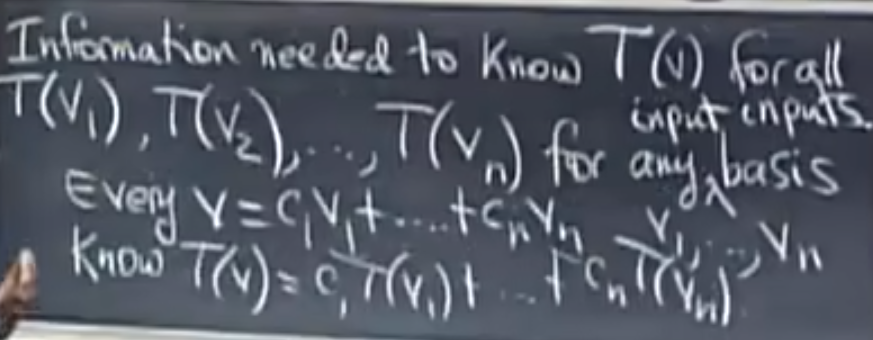 Information needed to know T(v) for all
inputs.
T(v₁), T(v₂), ..., T(vₙ) for any input basis
v₁, ..., vₙ
Every v = c₁v₁ + .... + cₙvₙ
Know T(v) = c₁T(v₁) + ... + cₙT(vₙ)